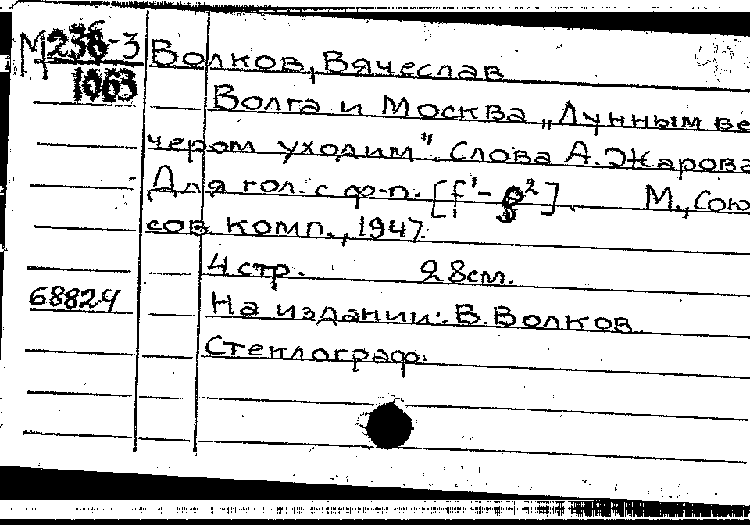 М 236-3
1063
Волков, Вячеслав
Волга и Москва „Лунным ве
чером уходим". Слова А. Жарова
Для гол. с ф-п. [f¹-g²]. М., Сою
сов. комп., 1947.
4 стр. 28см.
68824
На издании: В. Волков.
Стеклограф.